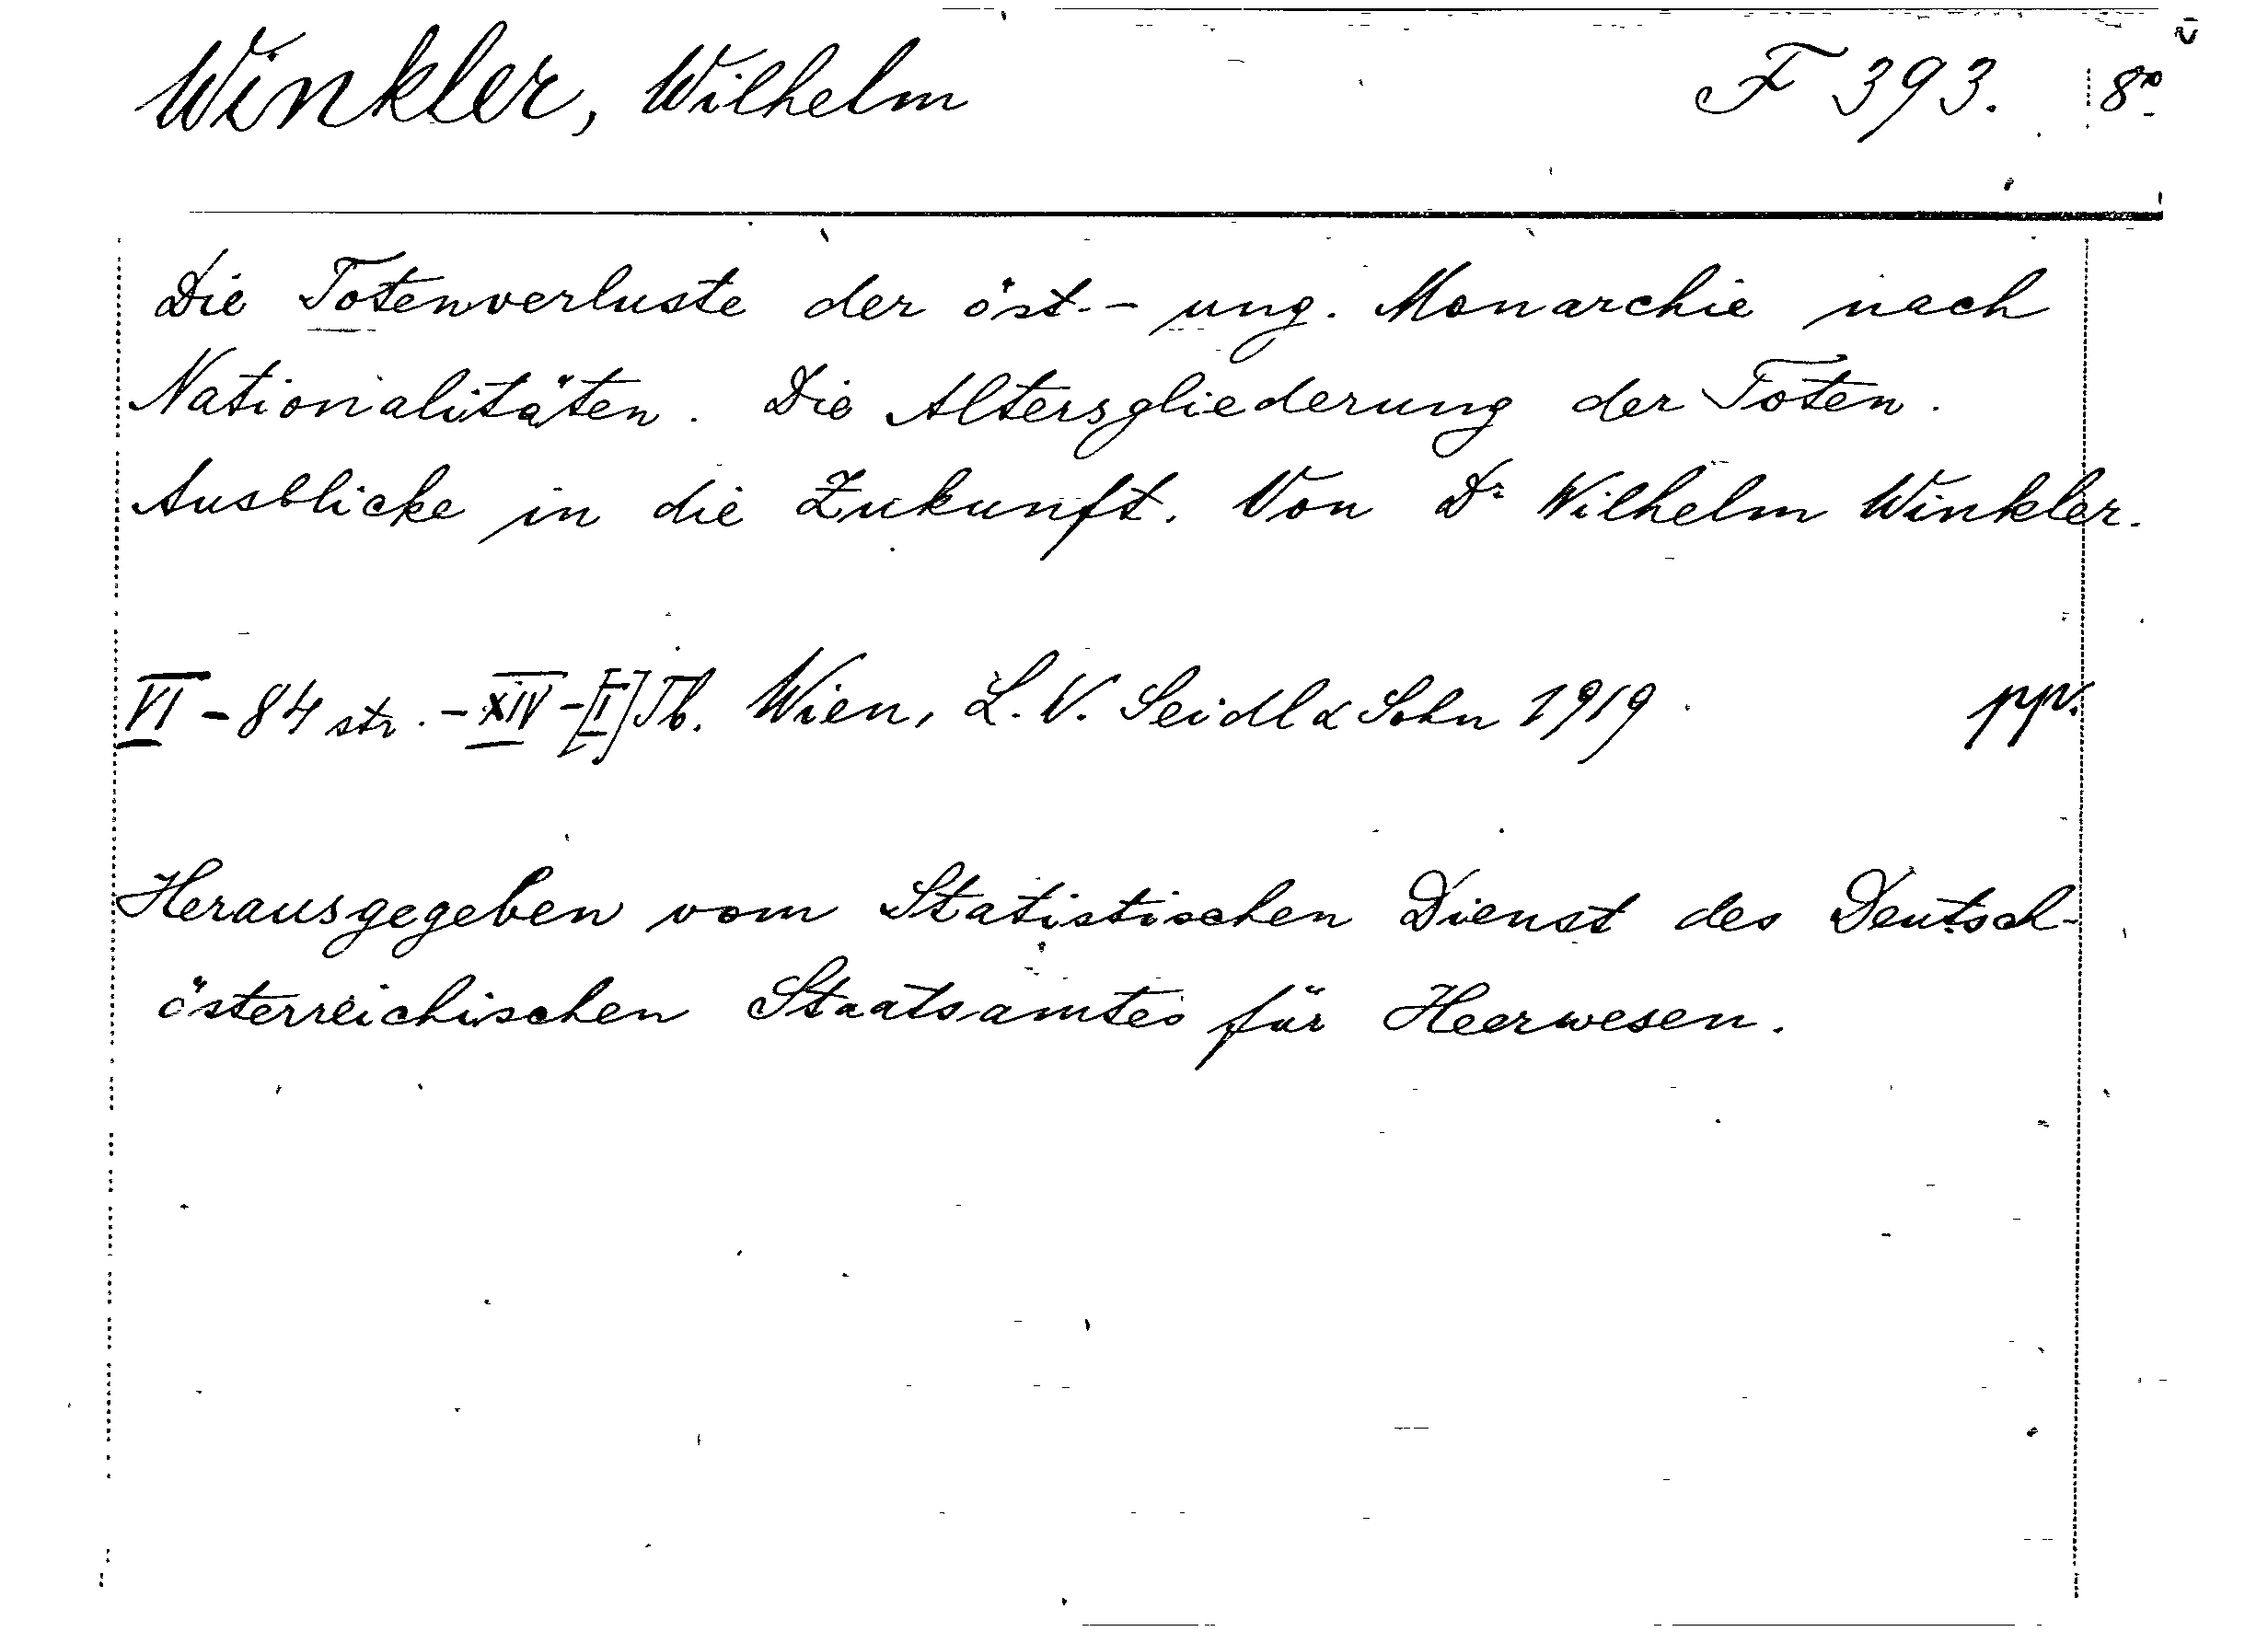 Winkler, Wilhelm F 393. 8°
Die Totenverluste der öst.- ung. Monarchie nach
Nationalitäten. Die Altersgliederung der Toten.
Ausblicke in die Zukunft. Von Dr Wilhelm Winkler.
VI - 84 str. - XIV - [I] Tb. Wien, L. V. Seidl & Sohn 1919. ppv.
Herausgegeben vom Statistischen Dienst des Deutsch-
österreichischen Staatsamtes für Heerwesen.